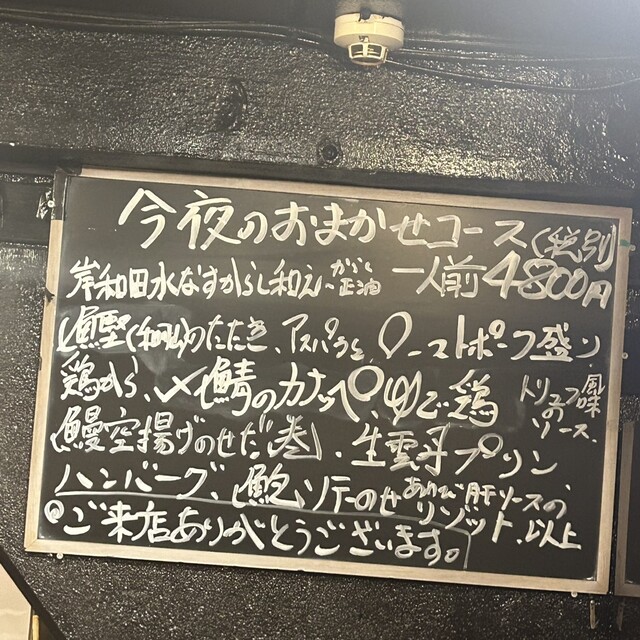 今夜のおまかせコース(税別)
岸和田水なすからし和え 正油 一人前4800円
鰹(和歌山)のたたき、アスパラと、ローストポーク盛り
鶏から、〆鯖のカナッペ、ゆで鶏 トリュフ風味のソース、
鰻空揚げのせだし巻、生雲丹プリン、
ハンバーグ、鮑ソテーのせ 肝ソースのリゾット、以上
ご来店ありがとうございます。